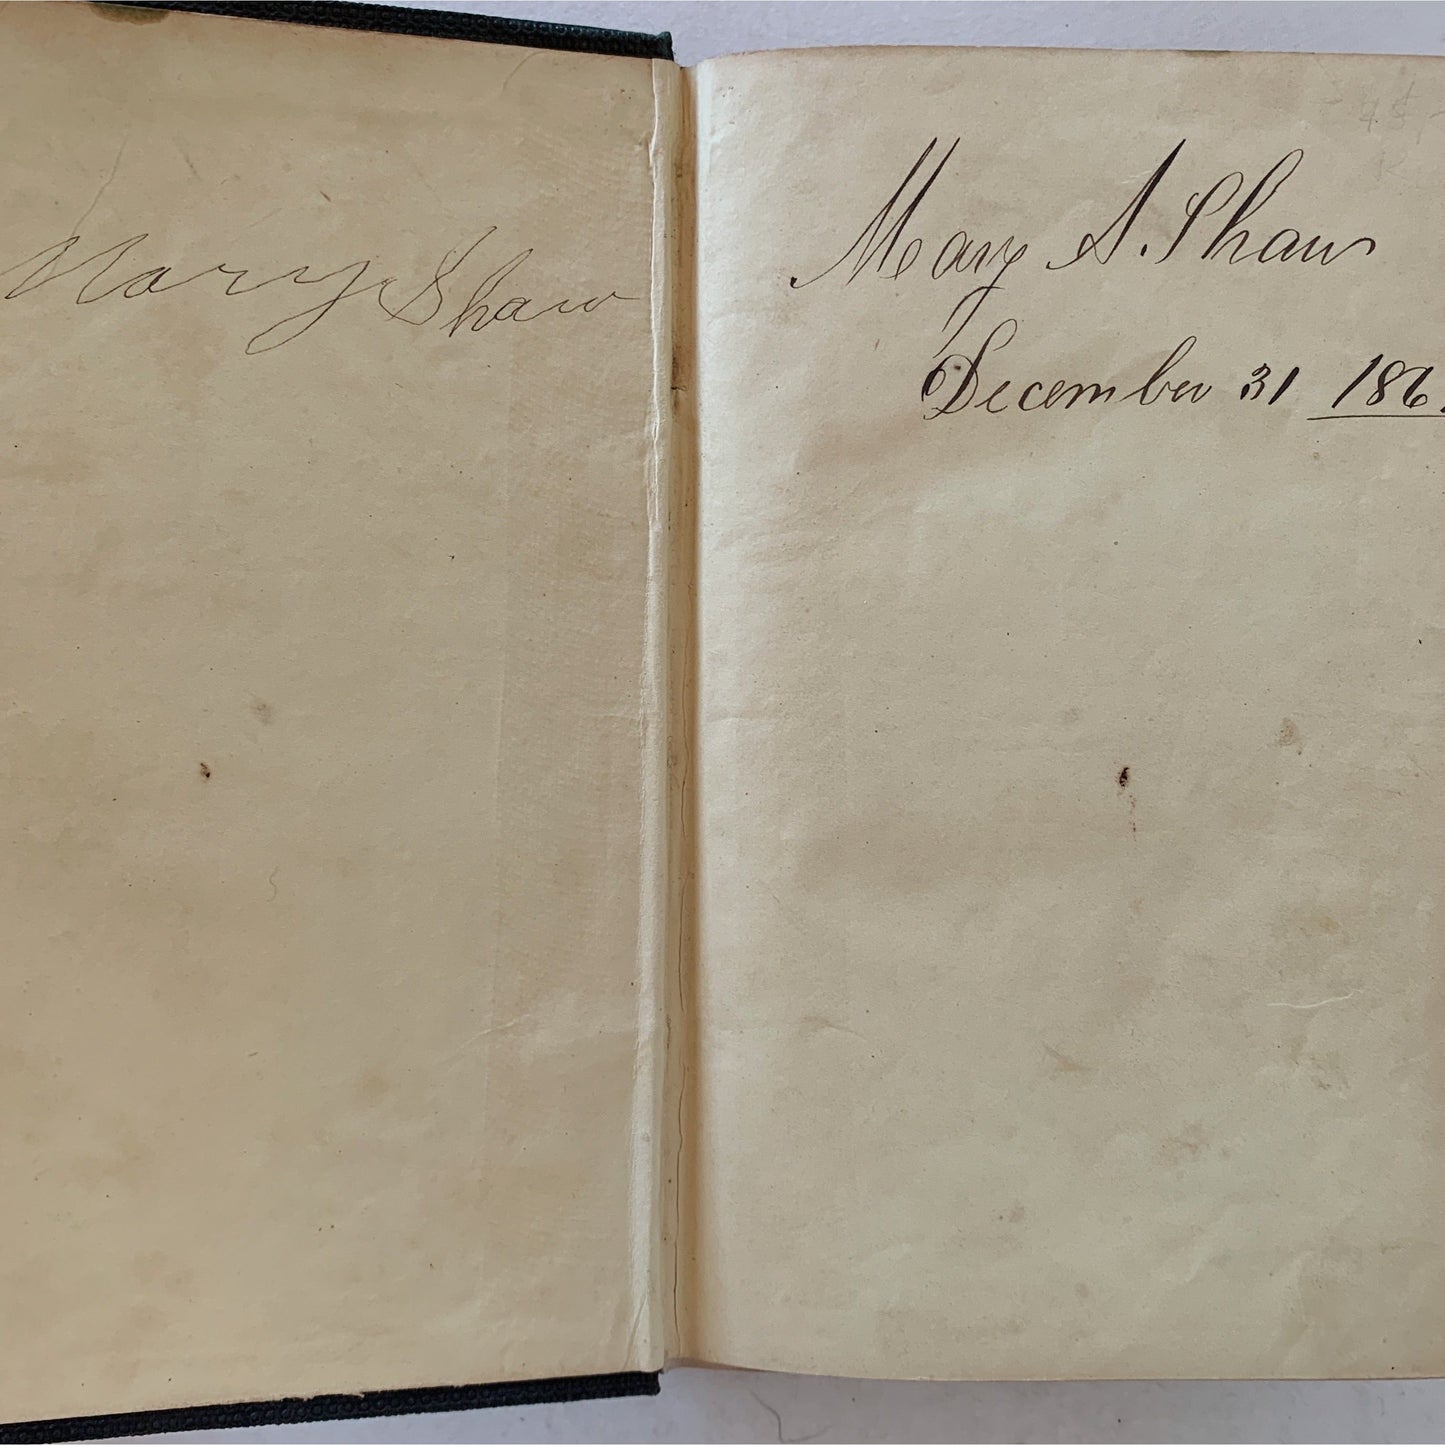 Mary Shaw
Mary A. Shaw
December 31 186